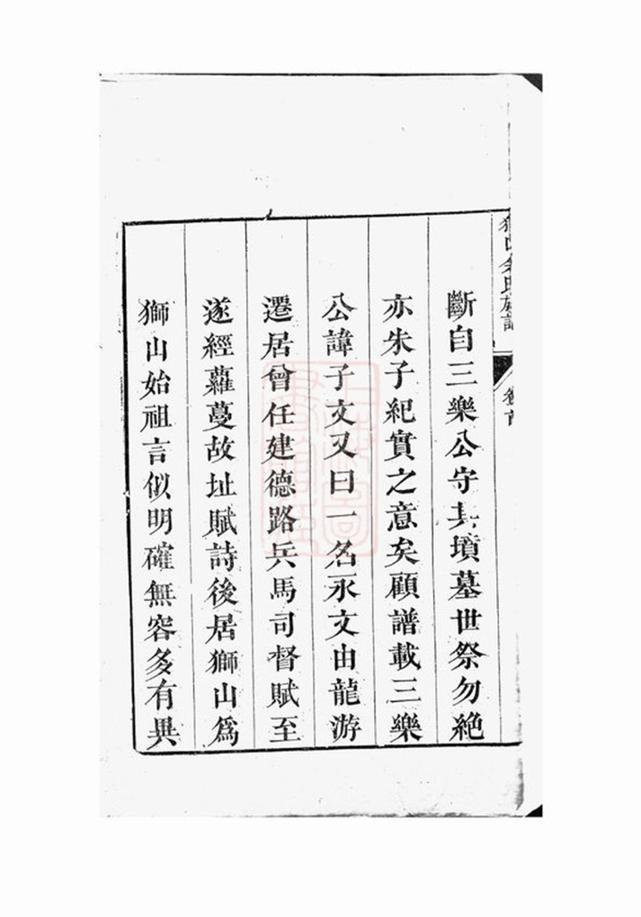 獅山余氏族譜
卷首
斷自三樂公守其墳墓世祭勿絕
亦朱子紀實之意矣顧譜載三樂
公諱子文又曰一名永文由龍游
遷居曾任建德路兵馬司督賦至
遂經蘿蔓故址賦詩後居獅山為
獅山始祖言似明確無容多有異